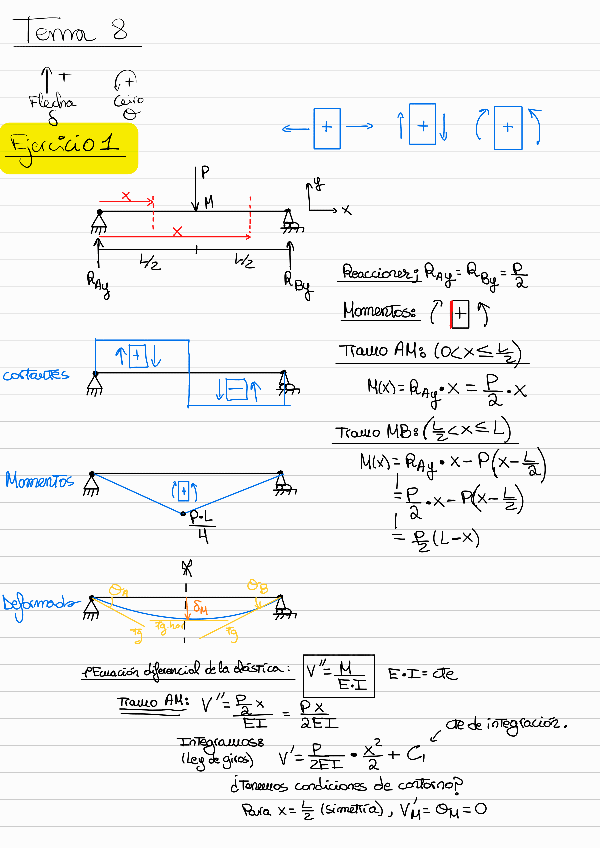 Tema 8
+ +
Flecha Giro
δ θ
Ejercicio 1
+ + +
P
x M y
x
x
L/2 L/2
R_Ay R_By
Reacciones; R_Ay = R_By = P/2
Momentos: +
Tramo AM: (0 < x ≤ L/2)
cortantes + −
M(x) = R_Ay · x = P/2 · x
Tramo MB: (L/2 < x ≤ L)
M(x) = R_Ay · x − P(x − L/2)
Momentos +
= P/2 · x − P(x − L/2)
P·L/4
= P/2 (L − x)
θ_A θ_B
Deformada δ_M
tg tg hor tg
Ecuación diferencial de la elástica: V'' = M/E·I E·I = cte
Tramo AM: V'' = P/2 x/EI = Px/2EI
cte de integración.
Integramos:
(Ley de giros) V' = P/2EI · x²/2 + C₁
¿Tenemos condiciones de contorno?
Para x = L/2 (simetría), V'_M = θ_M = 0